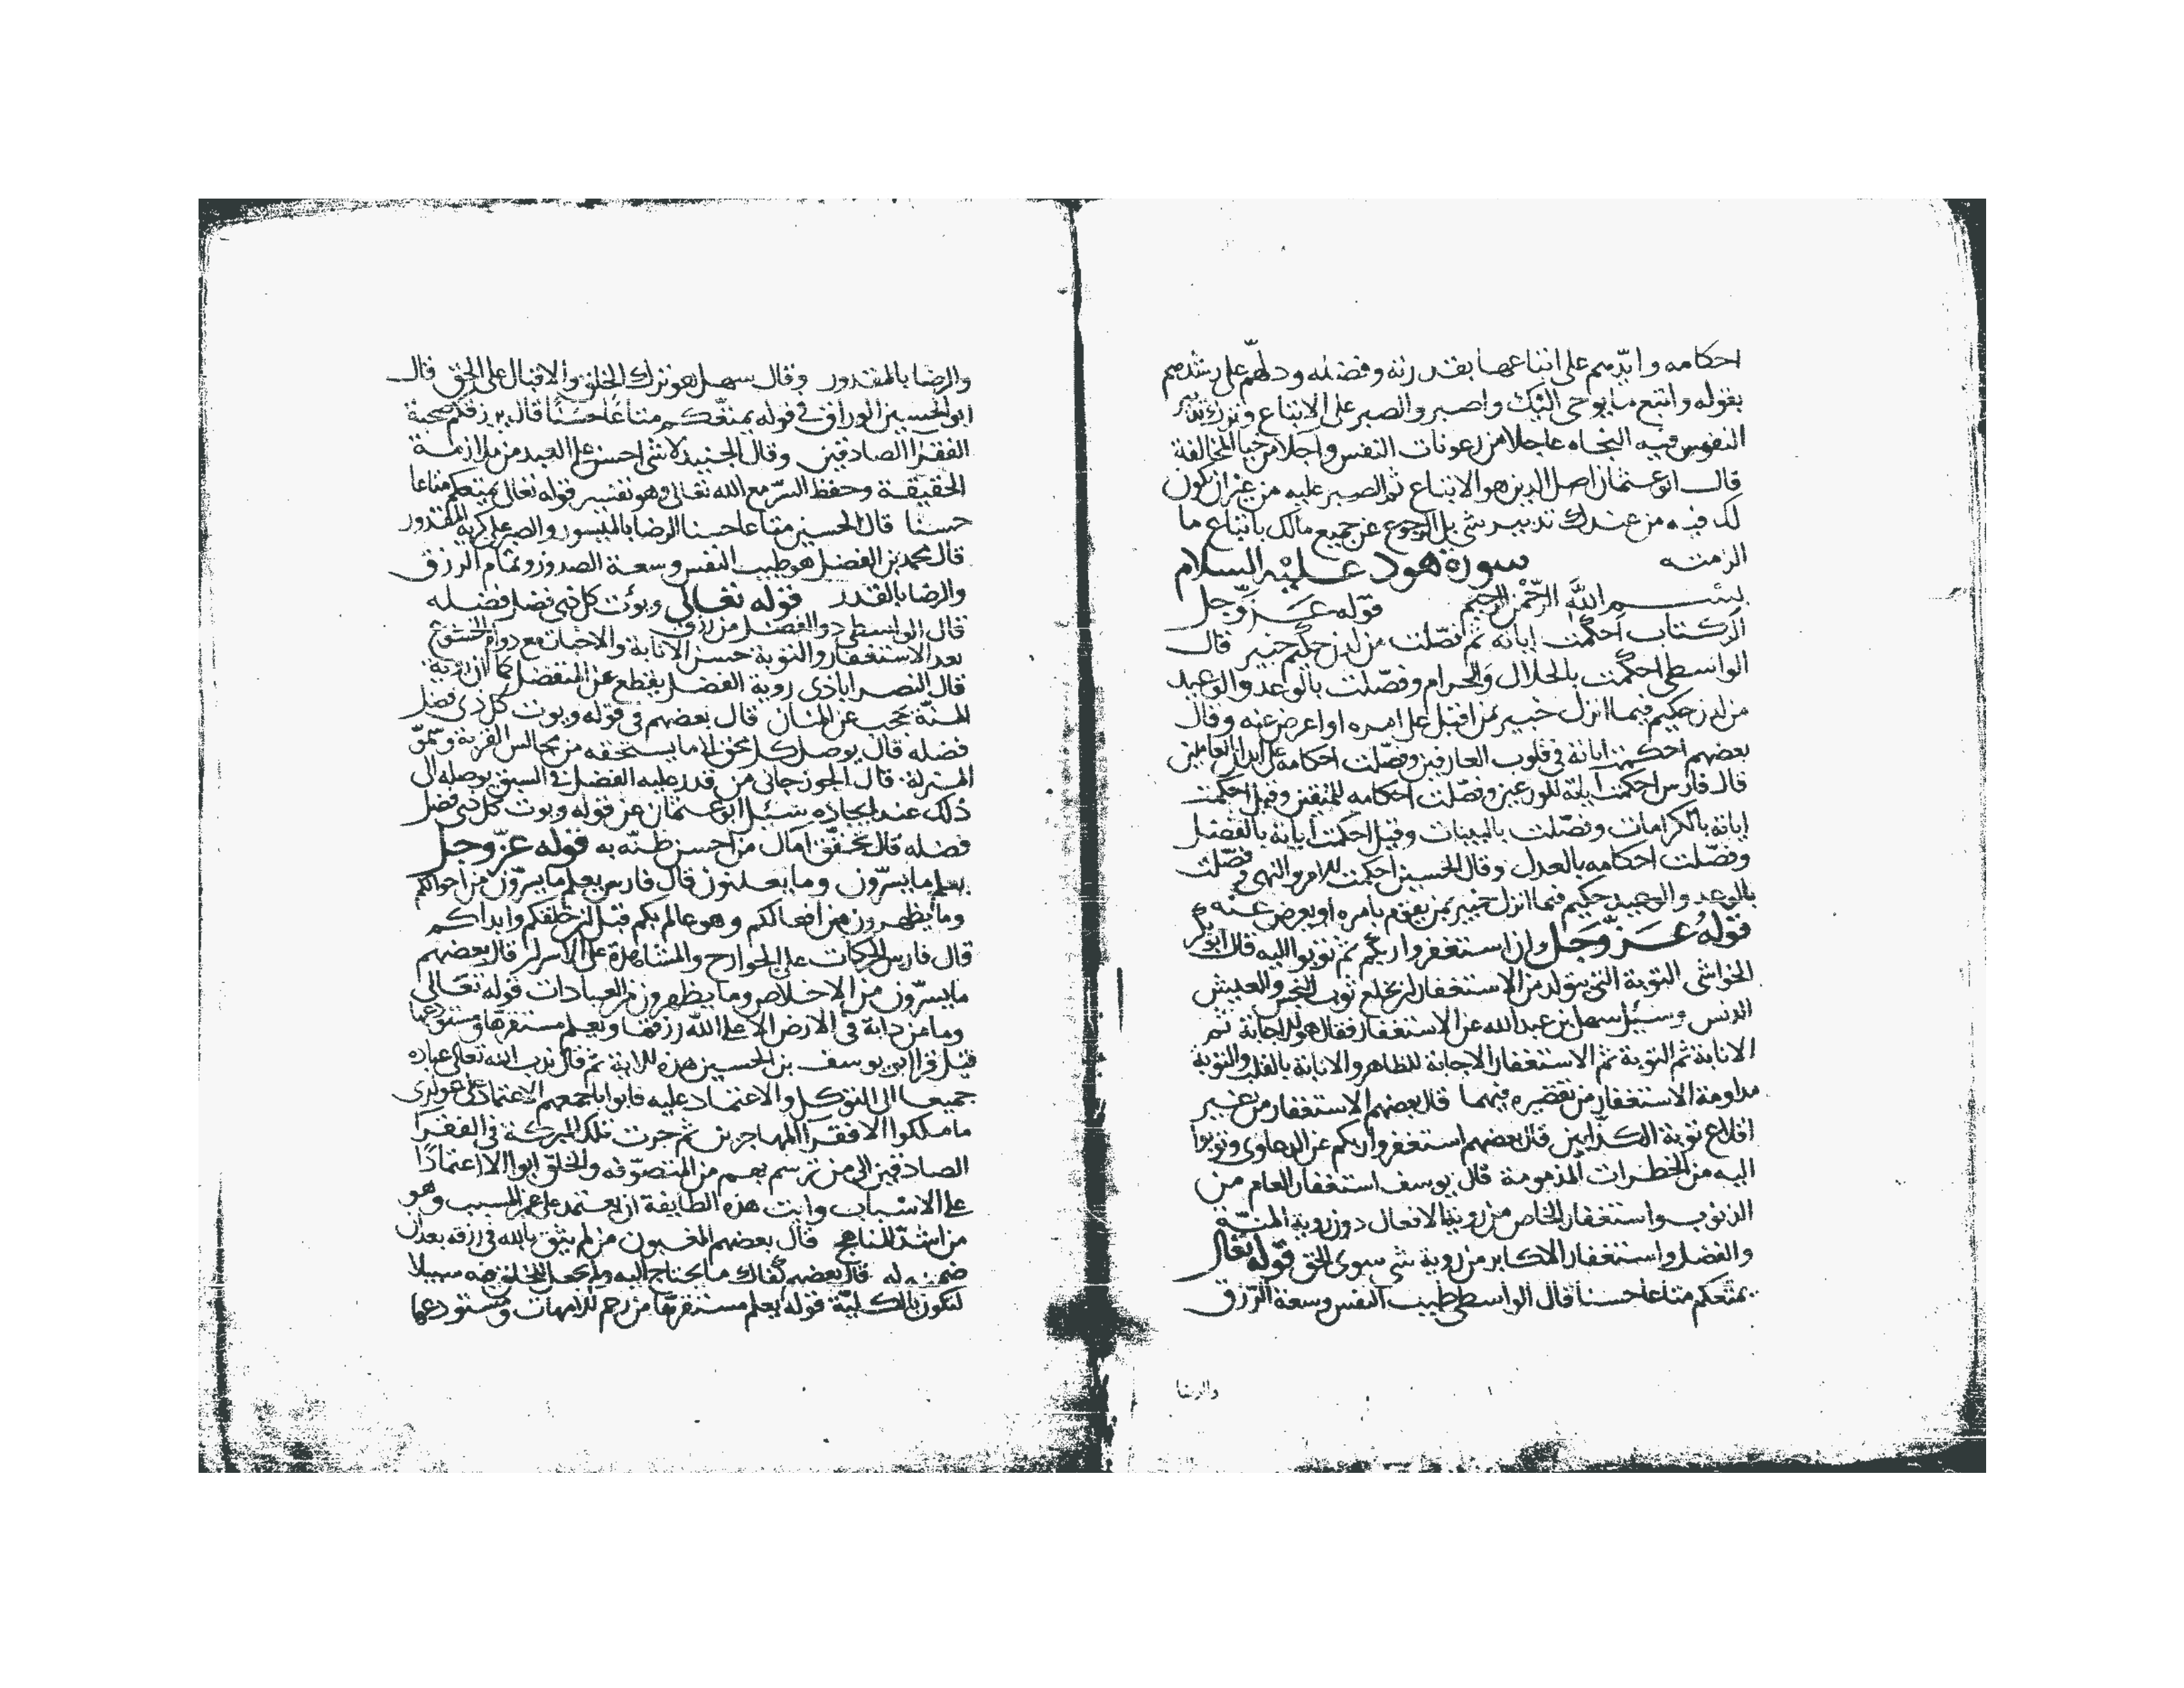 احكامه وايدهم على اتباعها بقدرته وفضله ودلهم على رشدهم
بقوله واتبع ما يوحى اليك واصبر والصبر على الاتباع وترك تدبير
النفوس فيه النجاه عاجلا من رعونات النفس واجلا من حيا المخالفة
قال ابو عثمان اصل الدين هو الاتباع ثم الصبر عليه من غير ان يكون
لك فيه من عندك تدبير شى بل الرجوع عن جميع مالك باتباع ما
الزمته سورة هود عليه السلام
بسم الله الرحمن الرحيم قوله عز وجل
الركتاب احكمت اياته ثم فصلت من لدن حكيم خبير قال
الواسطى احكمت بالحلال والحرام وفصلت بالوعد والوعيد
من لدن حكيم فيما انزل خبير بمن اقبل على امره او اعرض عنه وقال
بعضهم احكمت اياته فى قلوب العارفين وفصلت احكامه على ابدان العاملين
قال فارس احكمت اياته للورعين وفصلت احكامه للمتقين وقيل احكمت
اياته بالكرامات وفصلت بالبينات وقيل احكمت اياته بالفضل
وفصلت احكامه بالعدل وقال الحسين احكمت للامر والنهى وفصلت
بالوعد والوعيد حكيم فيما انزل خبير بمن يقوم بامره او يعرض عنه
قوله عز وجل وان استغفروا ربكم ثم توبوا اليه قال ابو بكر
التوبة التى يتولد من الاستغفار لن يخلع ثوب النجس والعيش
الدنس وسئل سهل بن عبد الله عن الاستغفار فقال هو الاجابة ثم
الانابة ثم التوبة ثم الاستغفار الاجابة للظاهر والانابة بالقلب والتوبة
مداومة الاستغفار من تقصيره فيهما قال بعضهم الاستغفار من غير
اقلاع توبة الكذابين قال بعضهم استغفروا ربكم عن الدعاوى وتوبوا
اليه من الخطرات المذمومة قال يوسف استغفار العام من
الذنوب واستغفار الخاص من روية الافعال دون روية المنة
والفضل واستغفار الاكابر من روية شى سوى الحق قوله تعالى
يمتعكم متاعا حسنا قال الواسطى طيب النفس وسعة الرزق
والرضا
والرضا بالمقدور وقال سهل هو ترك الخلق والاقبال على الحق قال
ابو الحسين الوراق فى قوله يمتعكم متاعا حسنا قال يرزقكم صحبة
الفقرا الصادقين وقال الجنيد لا شى احسن على العبد من ملازمة
الحقيقة وحفظ السر مع الله تعالى وهو تفسير قوله تعالى يمتعكم متاعا
حسنا قال الحسين متاعا حسنا الرضا بالميسور والصبر على كريه المقدور
قال محمد بن الفضل هو طيب النفس وسعة الصدر وتمام الرزق
والرضا بالقدر قوله تعالى ويوت كل ذى فضل فضله
قال الواسطى ذو الفضل من رزق
بعد الاستغفار والتوبة حسن الانابة والاخبات مع دوام الخشوع
قال النصراباذى روية الفضل يقطع عن المتفضل كما ان روية
المنة يحجب عن المنان قال بعضهم فى قوله ويوت كل ذى فضل
فضله قال يوصل كل محق الى ما يستحقه من مجالس القربة وسمو
المنزلة قال الجوزجانى من قدر عليه الفضل فى السبق يوصله الى
ذلك عند ايجاده سئل ابو عثمان عن قوله ويوت كل ذى فضل
فضله قال يحقق امال من احسن ظنه به قوله عز وجل
يعلم ما يسرون وما يعلنون قال فارس يعلم ما يسرون من احوالكم
وما يظهرون من افعالكم وهو عالم بكم قبل ان خلقكم وابداكم
قال فارس الحركات على الجوارح والمشاهدة على الاسرار قال بعضهم
ما يسرون من الاخلاص وما يظهرون من العبادات قوله تعالى
وما من دابة فى الارض الا على الله رزقها ويعلم مستقرها ومستودعها
قيل قرا ابو يوسف بن الحسين هذه الاية ثم قال ندب الله تعالى عباده
جميعا الى التوكل والاعتماد عليه فابوا باجمعهم الاعتماد على عوارى
ما ملكوا الا فقرا المهاجرين ثم جرت تلك البركة فى الفقرا
الصادقين الى من ترسم بهم من المتصوفه والخلق ابوا الا اعتمادا
على الاسباب وابت هذه الطايفة ان يعتمد على غير المسبب وهو
من اشد المناهج قال بعضهم المغبون من لم يثق بالله فى رزقه بعد ان
ضمنه له قال بعضهم كفاك ما يحتاج اليه ولم يجعل للخلق فيه سبيلا
لتكون بالكلية قوله يعلم مستقرها من رحم الامهات ومستودعها